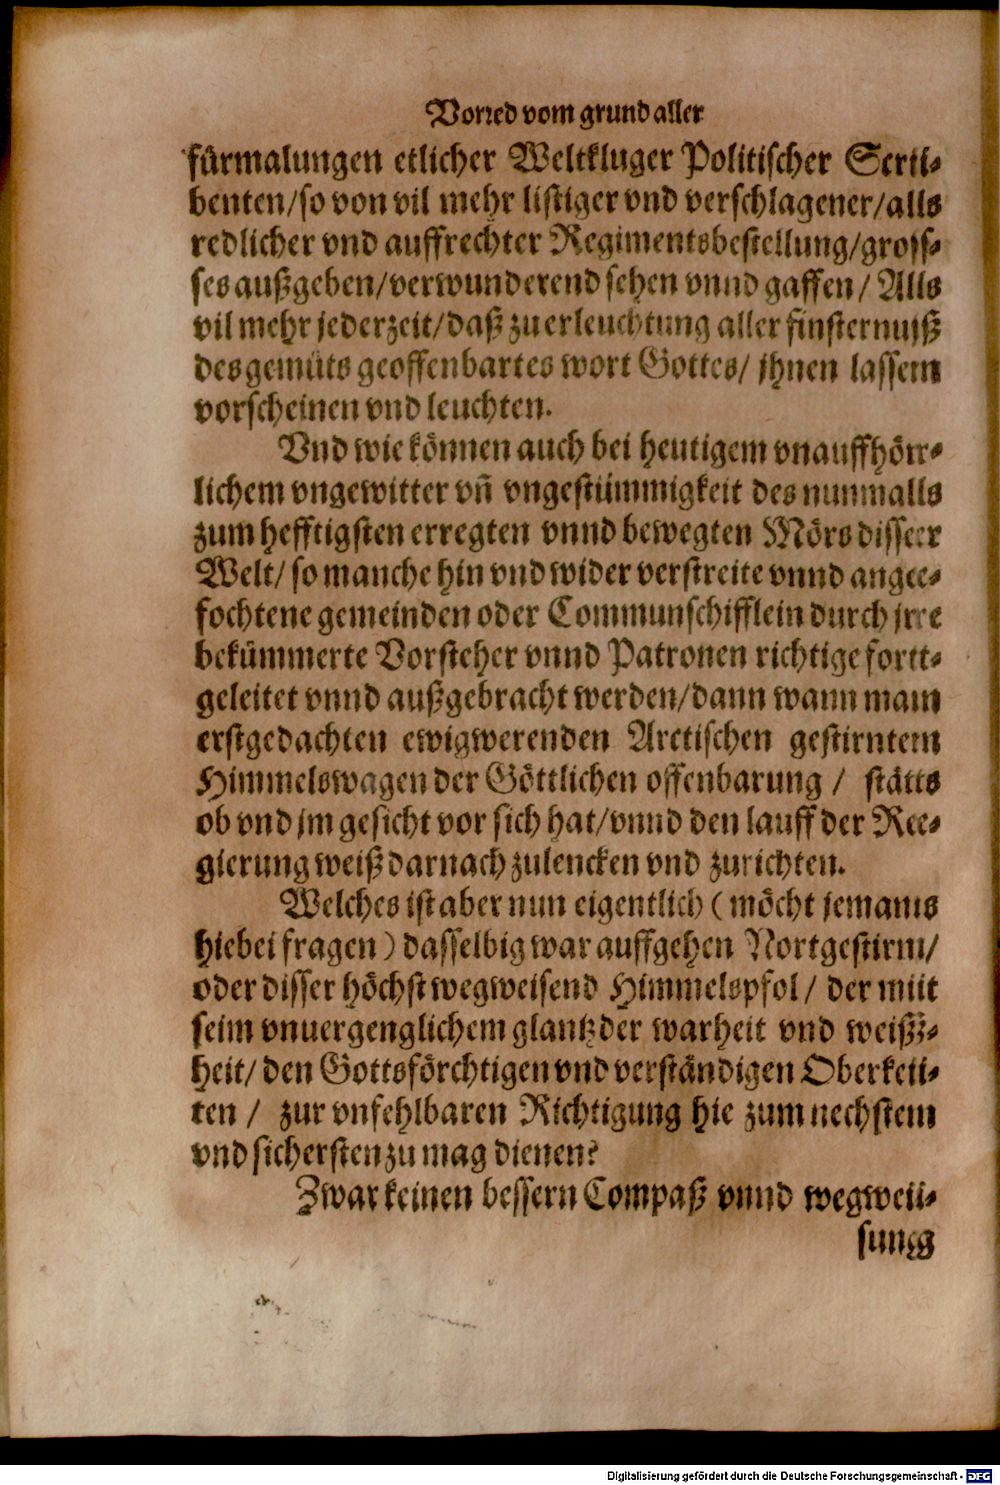 Vorred vom grund aller
fürmalungen etlicher Weltkluger Politischer Scri-
benten/so von vil mehr listiger vnd verschlagener/als
redlicher vnd auffrechter Regimentsbestellung/gros-
ses außgeben/verwunderend sehen vnnd gaffen/ Als
vil mehr jederzeit/daß zu erleuchtung aller finsternuß
des gemüts geoffenbartes wort Gottes/ jhnen lassen
vorscheinen vnd leuchten.
Vnd wie können auch bei heutigem vnauffhör-
lichem vngewitter vñ vngestümmigkeit des nunmals
zum hefftigsten erregten vnnd bewegten Mörs disser
Welt/ so manche hin vnd wider verstreite vnnd ange-
fochtene gemeinden oder Communschifflein durch jre
bekümmerte Vorsteher vnnd Patronen richtige fort-
geleitet vnnd außgebracht werden/dann wann man
erstgedachten ewigwerenden Arctischen gestirnten
Himmelswagen der Göttlichen offenbarung / stäts
ob vnd jm gesicht vor sich hat/vnnd den lauff der Re-
gierung weiß darnach zulencken vnd zurichten.
Welches ist aber nun eigentlich ( möcht jemans
hiebei fragen ) dasselbig war auffgehen Nortgestirn/
oder disser höchst wegweisend Himmelspfol/ der mit
seim vnuergenglichem glantz der warheit vnd weiß-
heit/ den Gottsförchtigen vnd verständigen Oberkei-
ten / zur vnfehlbaren Richtigung hie zum nechsten
vnd sichersten zu mag dienen?
Zwar keinen bessern Compaß vnnd wegwei-
sung
Digitalisierung gefördert durch die Deutsche Forschungsgemeinschaft - DFG